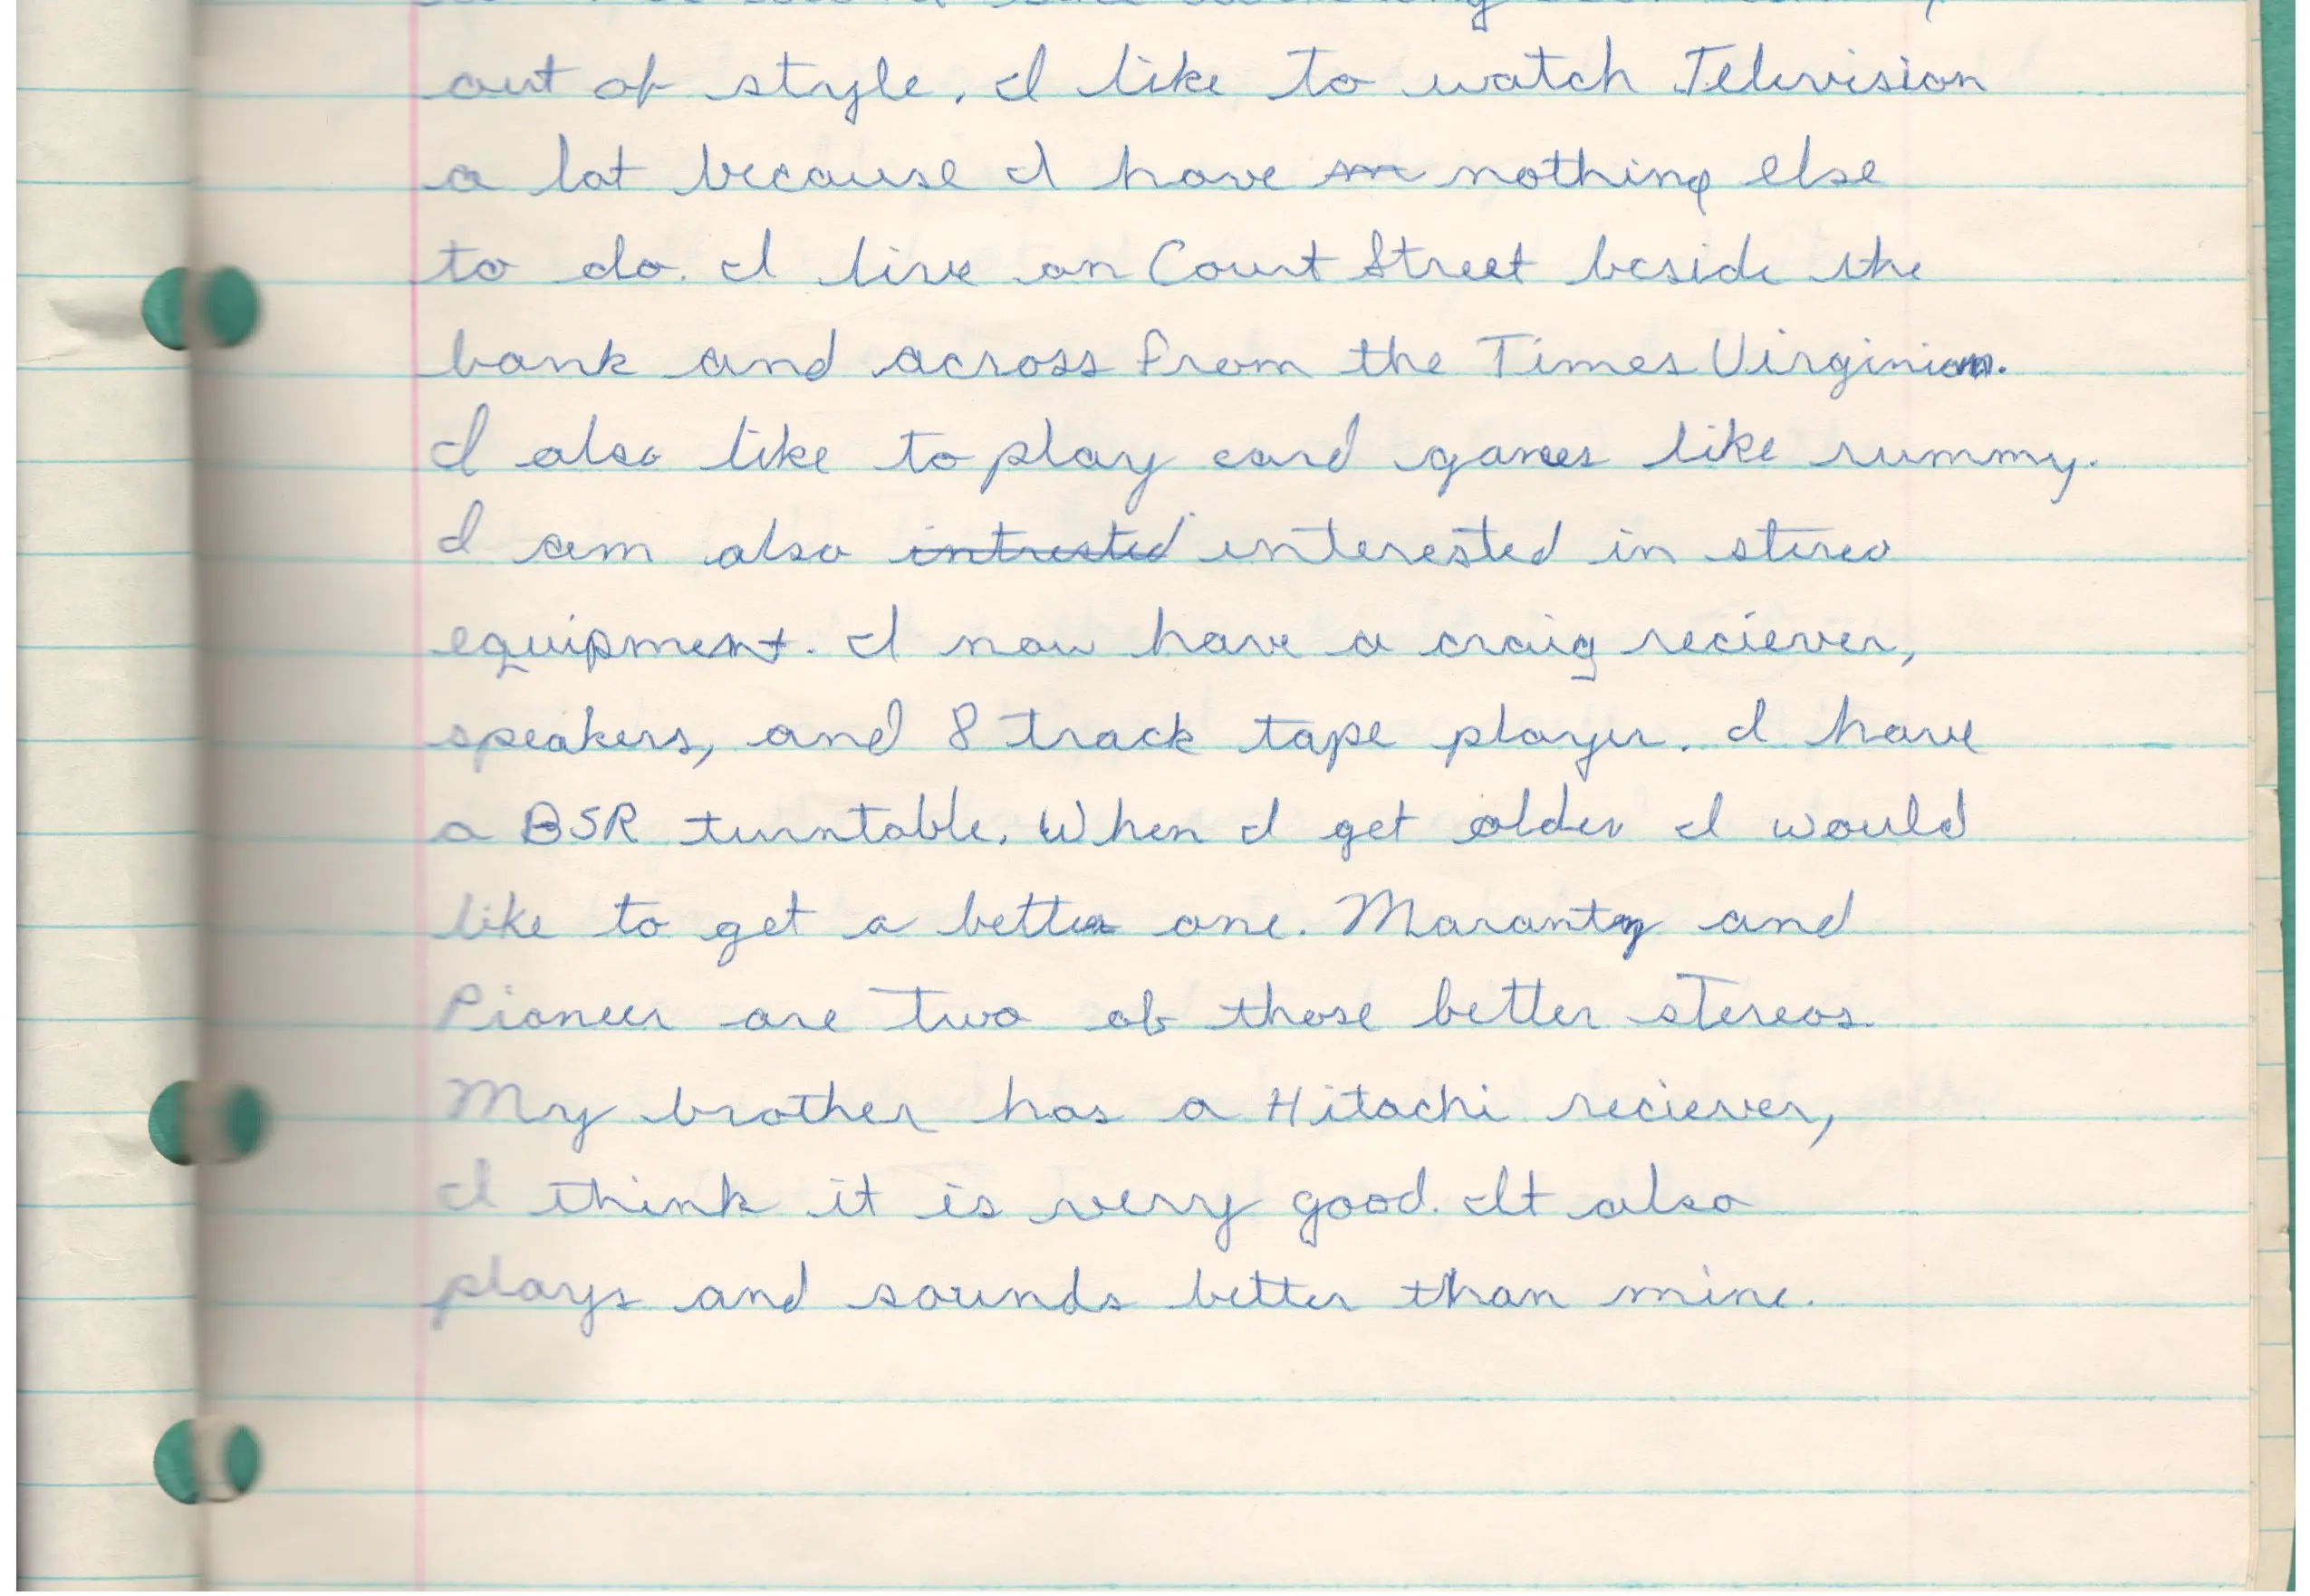 out of style. I like to watch Television
a lot because I have nothing else
to do. I live on Court Street beside the
bank and across from the Times Virginian.
I also like to play card games like rummy.
I am also intrested interested in stereo
equipment. I now have a craig reciever,
speakers, and 8 track tape player. I have
a BSR turntable. When I get older I would
like to get a better one. Marantz and
Pioneer are two of those better stereos.
My brother has a Hitachi reciever,
I think it is very good. It also
plays and sounds better than mine.